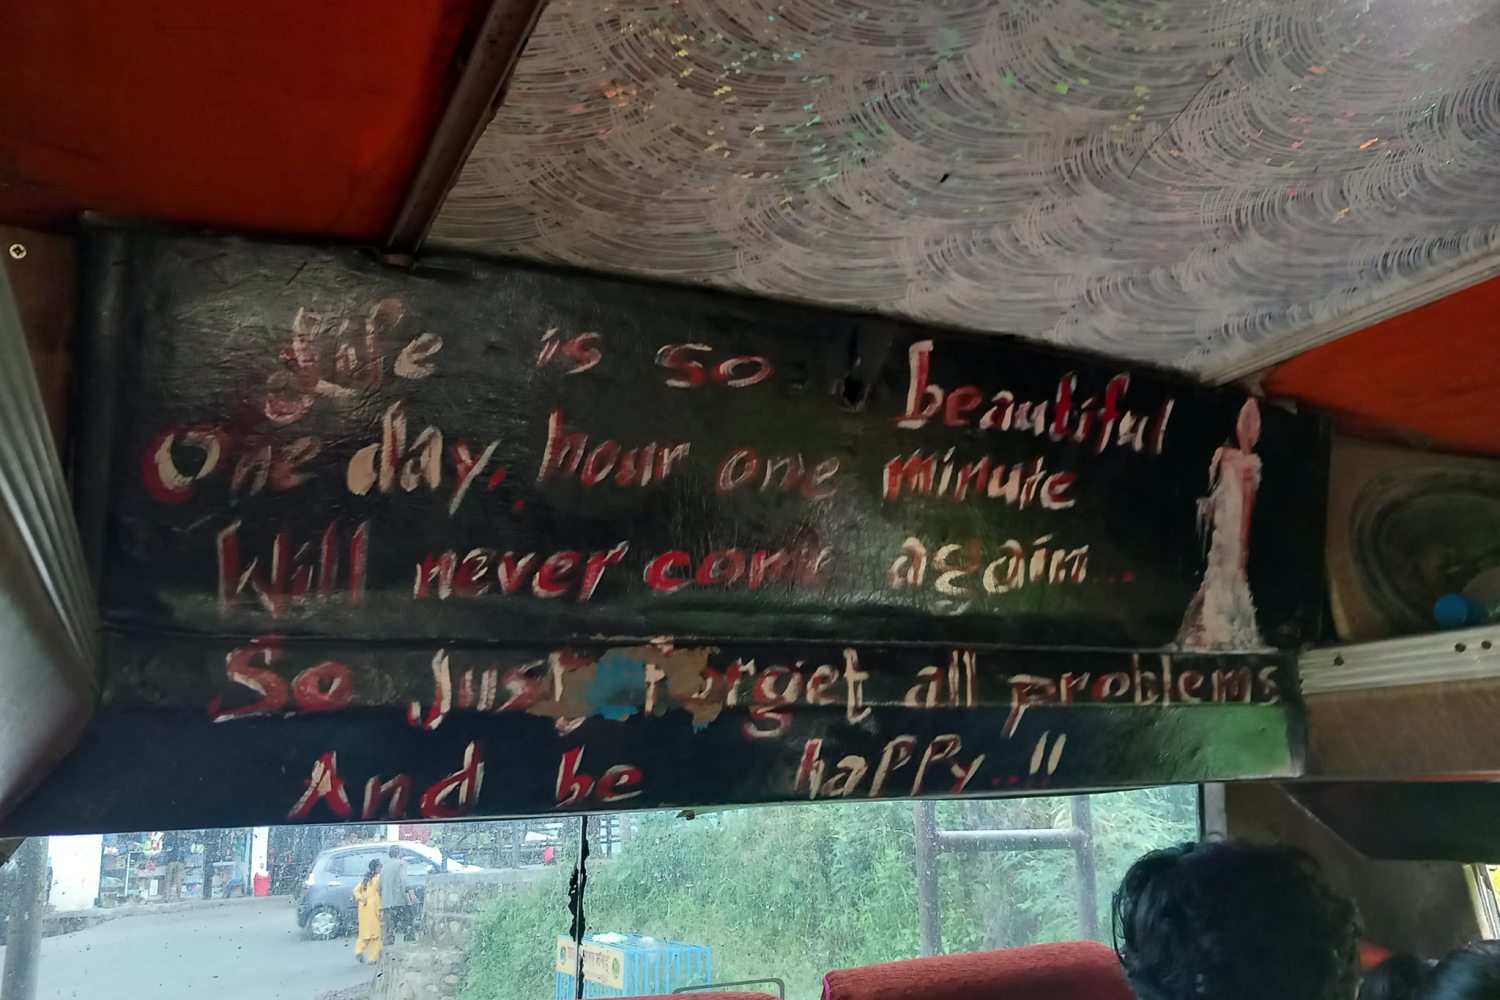 Life is so beautiful
One day, hour one minute
Will never come again...
So Just forget all problems
And be happy..!!